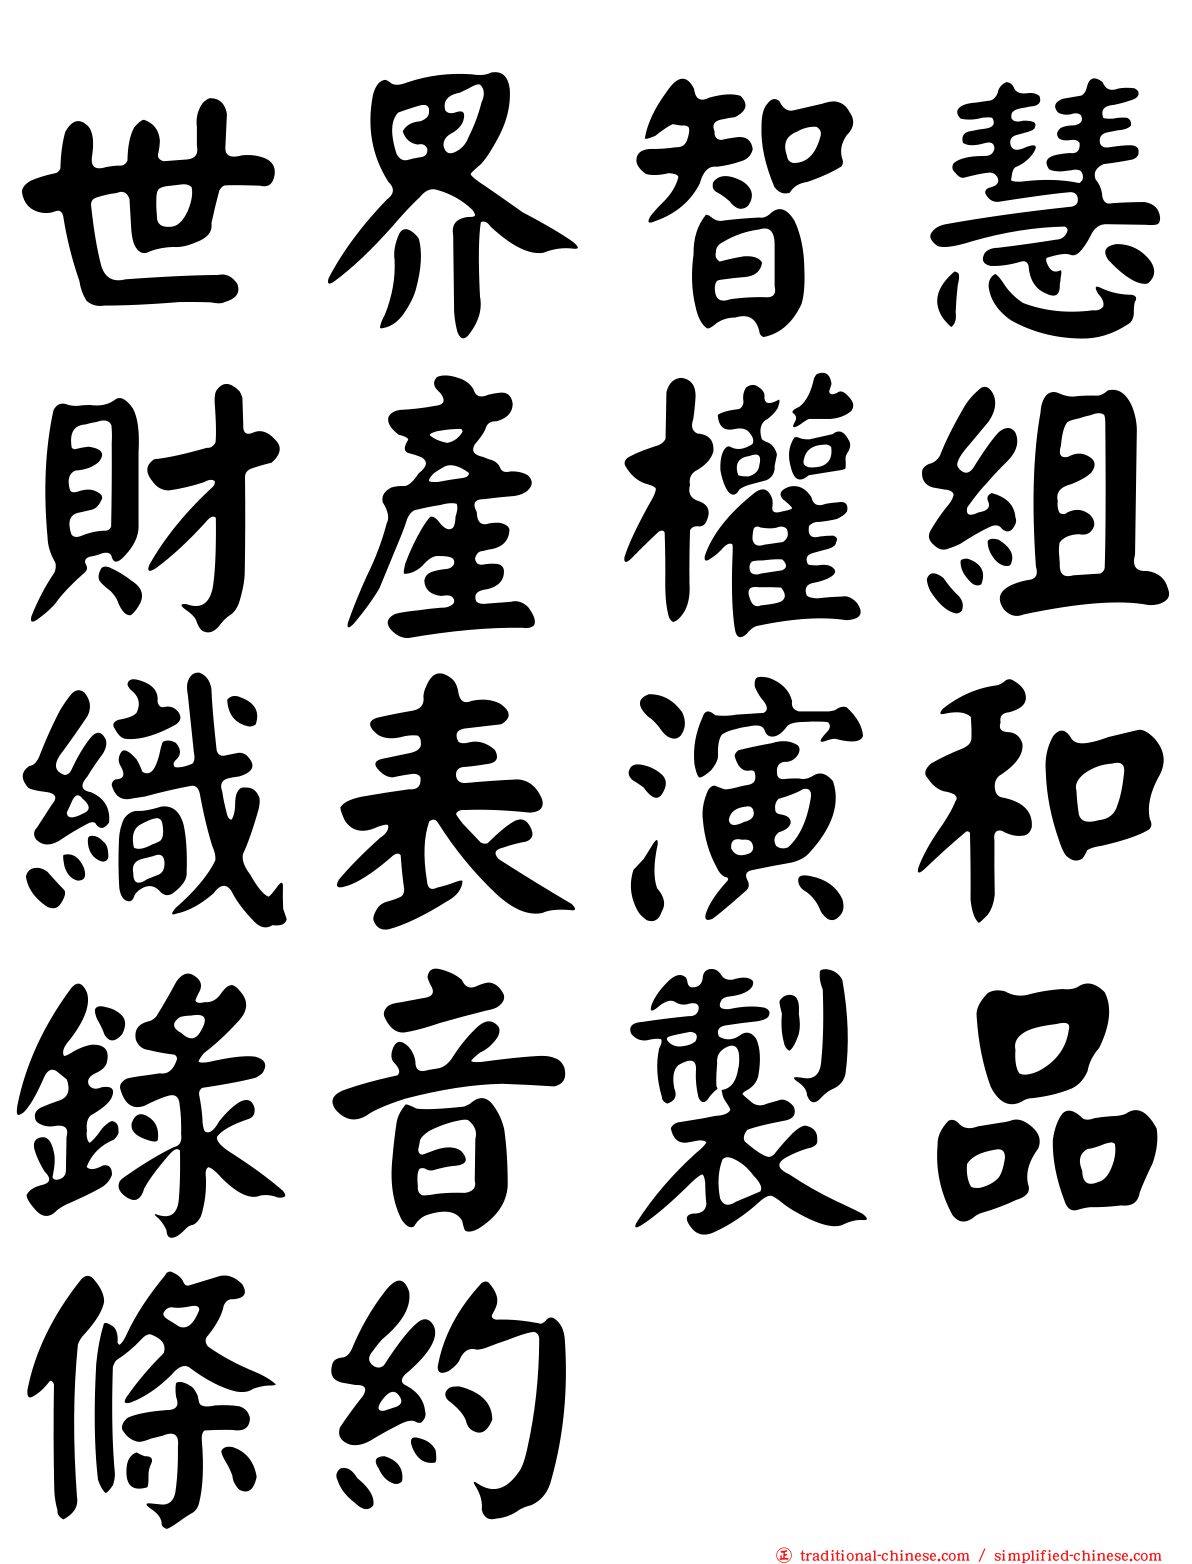 世界智慧
財產權組
織表演和
錄音製品
條約
正 traditional-chinese.com / simplified-chinese.com